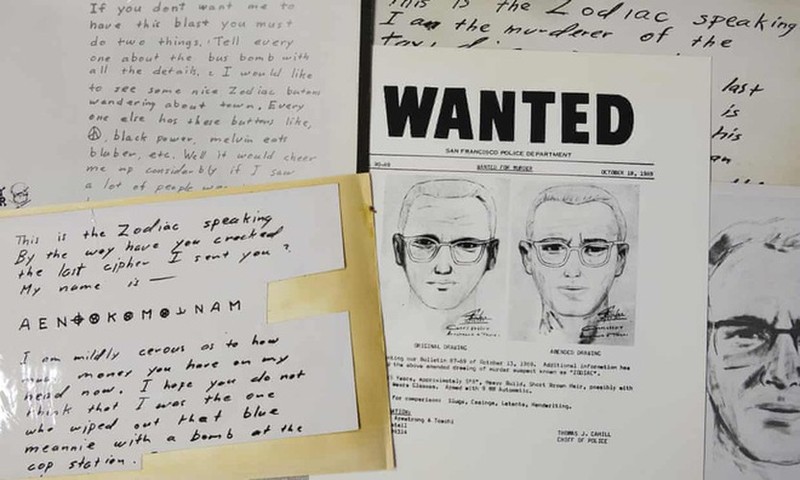 If you dont want me to
have this blast you must
do two things. Tell every
one about the bus bomb with
all the details. I would like
to see some nice Zodiac butons
wandering about town. Every
one else has these buttons like,
black power, melvin eats
blaber, etc. Well it would cheer
me up considerbly if I saw
a lot of people
This is the Zodiac speaking
I am the murderer of the
last
is
his
an
This is the Zodiac speaking
By the way have you cracked
the last cipher I sent you?
My name is —
A E N ⊕ ⊗ K ⊗ M ⊗ ⅃ N A M
I am mildly cerous as to how
much money you have on my
head now. I hope you do not
think that I was the one
who wiped out that blue
meannie with a bomb at the
cop station.
WANTED
SAN FRANCISCO POLICE DEPARTMENT
90-69 WANTED FOR MURDER OCTOBER 18, 1969
ORIGINAL DRAWING AMENDED DRAWING
our Bulletin 87-69 of October 13, 1969. Additional information has
the above amended drawing of murder suspect known as "ZODIAC".
Years, Approximately 5'8", Heavy Build, Short Brown Hair, possibly with
Wears Glasses. Armed with 9 MM Automatic.
for comparison: Slugs, Casings, Latents, Handwriting.
Armstrong & Toschi
THOMAS J. CAHILL
CHIEF OF POLICE